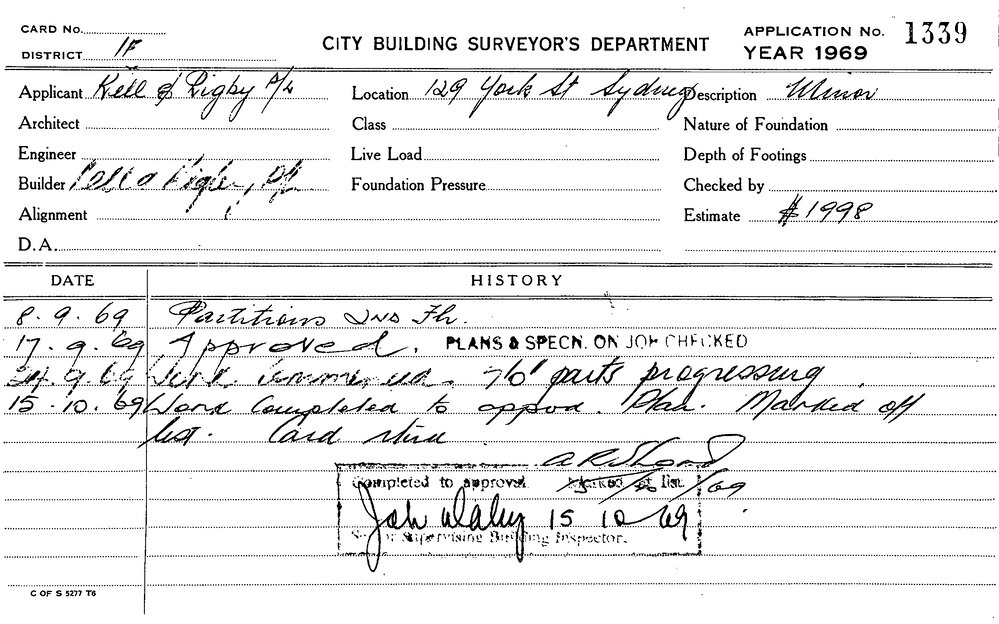 CARD No.
DISTRICT 1F
CITY BUILDING SURVEYOR'S DEPARTMENT
APPLICATION No. 1339
YEAR 1969
Applicant Kell & Rigby P/L
Location 129 York St Sydney
Description Minor
Architect
Class
Nature of Foundation
Engineer
Live Load
Depth of Footings
Builder Kell & Rigby P/L
Foundation Pressure
Checked by
Alignment
Estimate $1998
D.A.
DATE HISTORY
8.9.69 Partitions 2nd Flr.
17.9.69 Approved. PLANS & SPECN. ON JOB CHECKED
24.9.69 Work Commenced. parts progressing
15.10.69 Work Completed to appvd. Plan. Marked off
list. Card
15/10/69
Completed to approval. Marked of list.
15 10 69
Senior Supervising Building Inspector.
C OF S 5277 T6